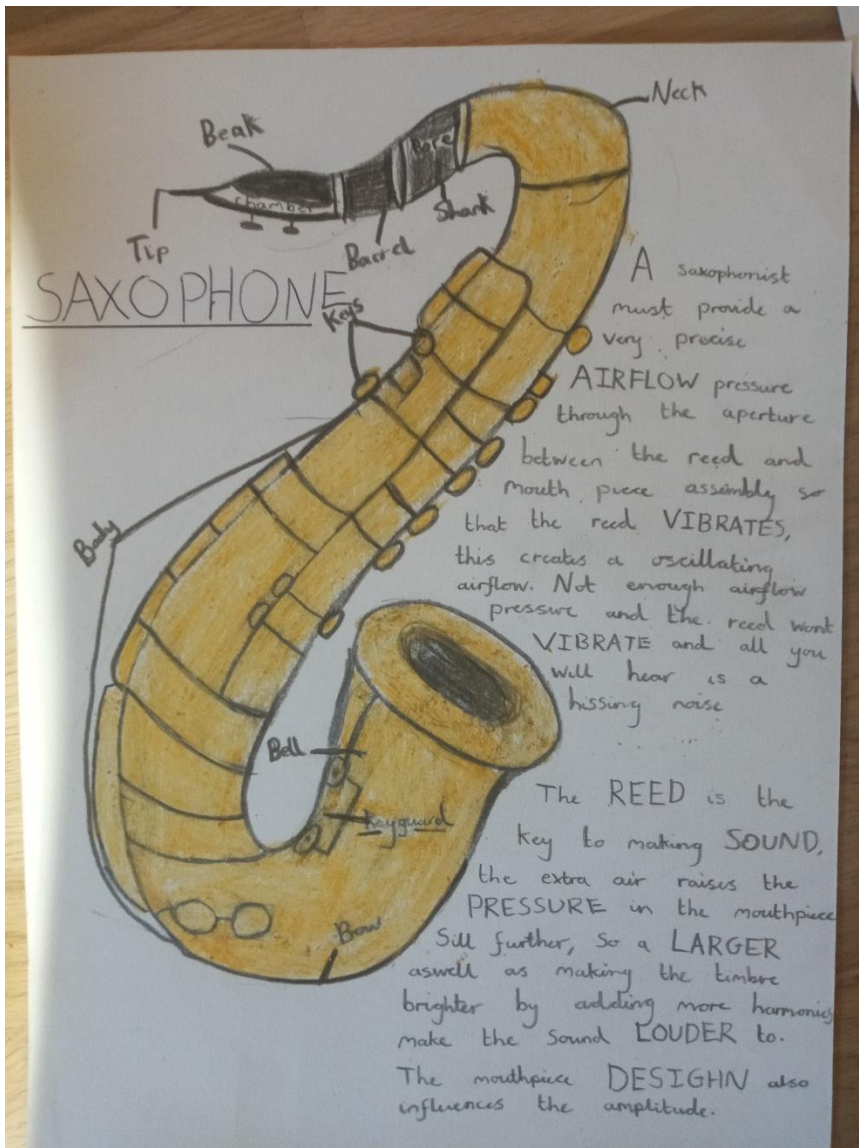 Neck
Beak
Bore
chamber
Shank
Tip
Barrel
SAXOPHONE
Keys
A saxophonist
must provide a
very precise
AIRFLOW pressure
through the aperture
between the reed and
mouth piece assembly so
that the reed VIBRATES,
this creates a oscillating
airflow. Not enough airflow
pressure and the reed wont
VIBRATE and all you
will hear is a
hissing noise
Body
Bell
Keyguard
Bow
The REED is the
key to making SOUND,
the extra air raises the
PRESSURE in the mouthpiece
Sill further, So a LARGER
aswell as making the timbre
brighter by adding more harmonics
make the Sound LOUDER to.
The mouthpiece DESIGHN also
influences the amplitude.